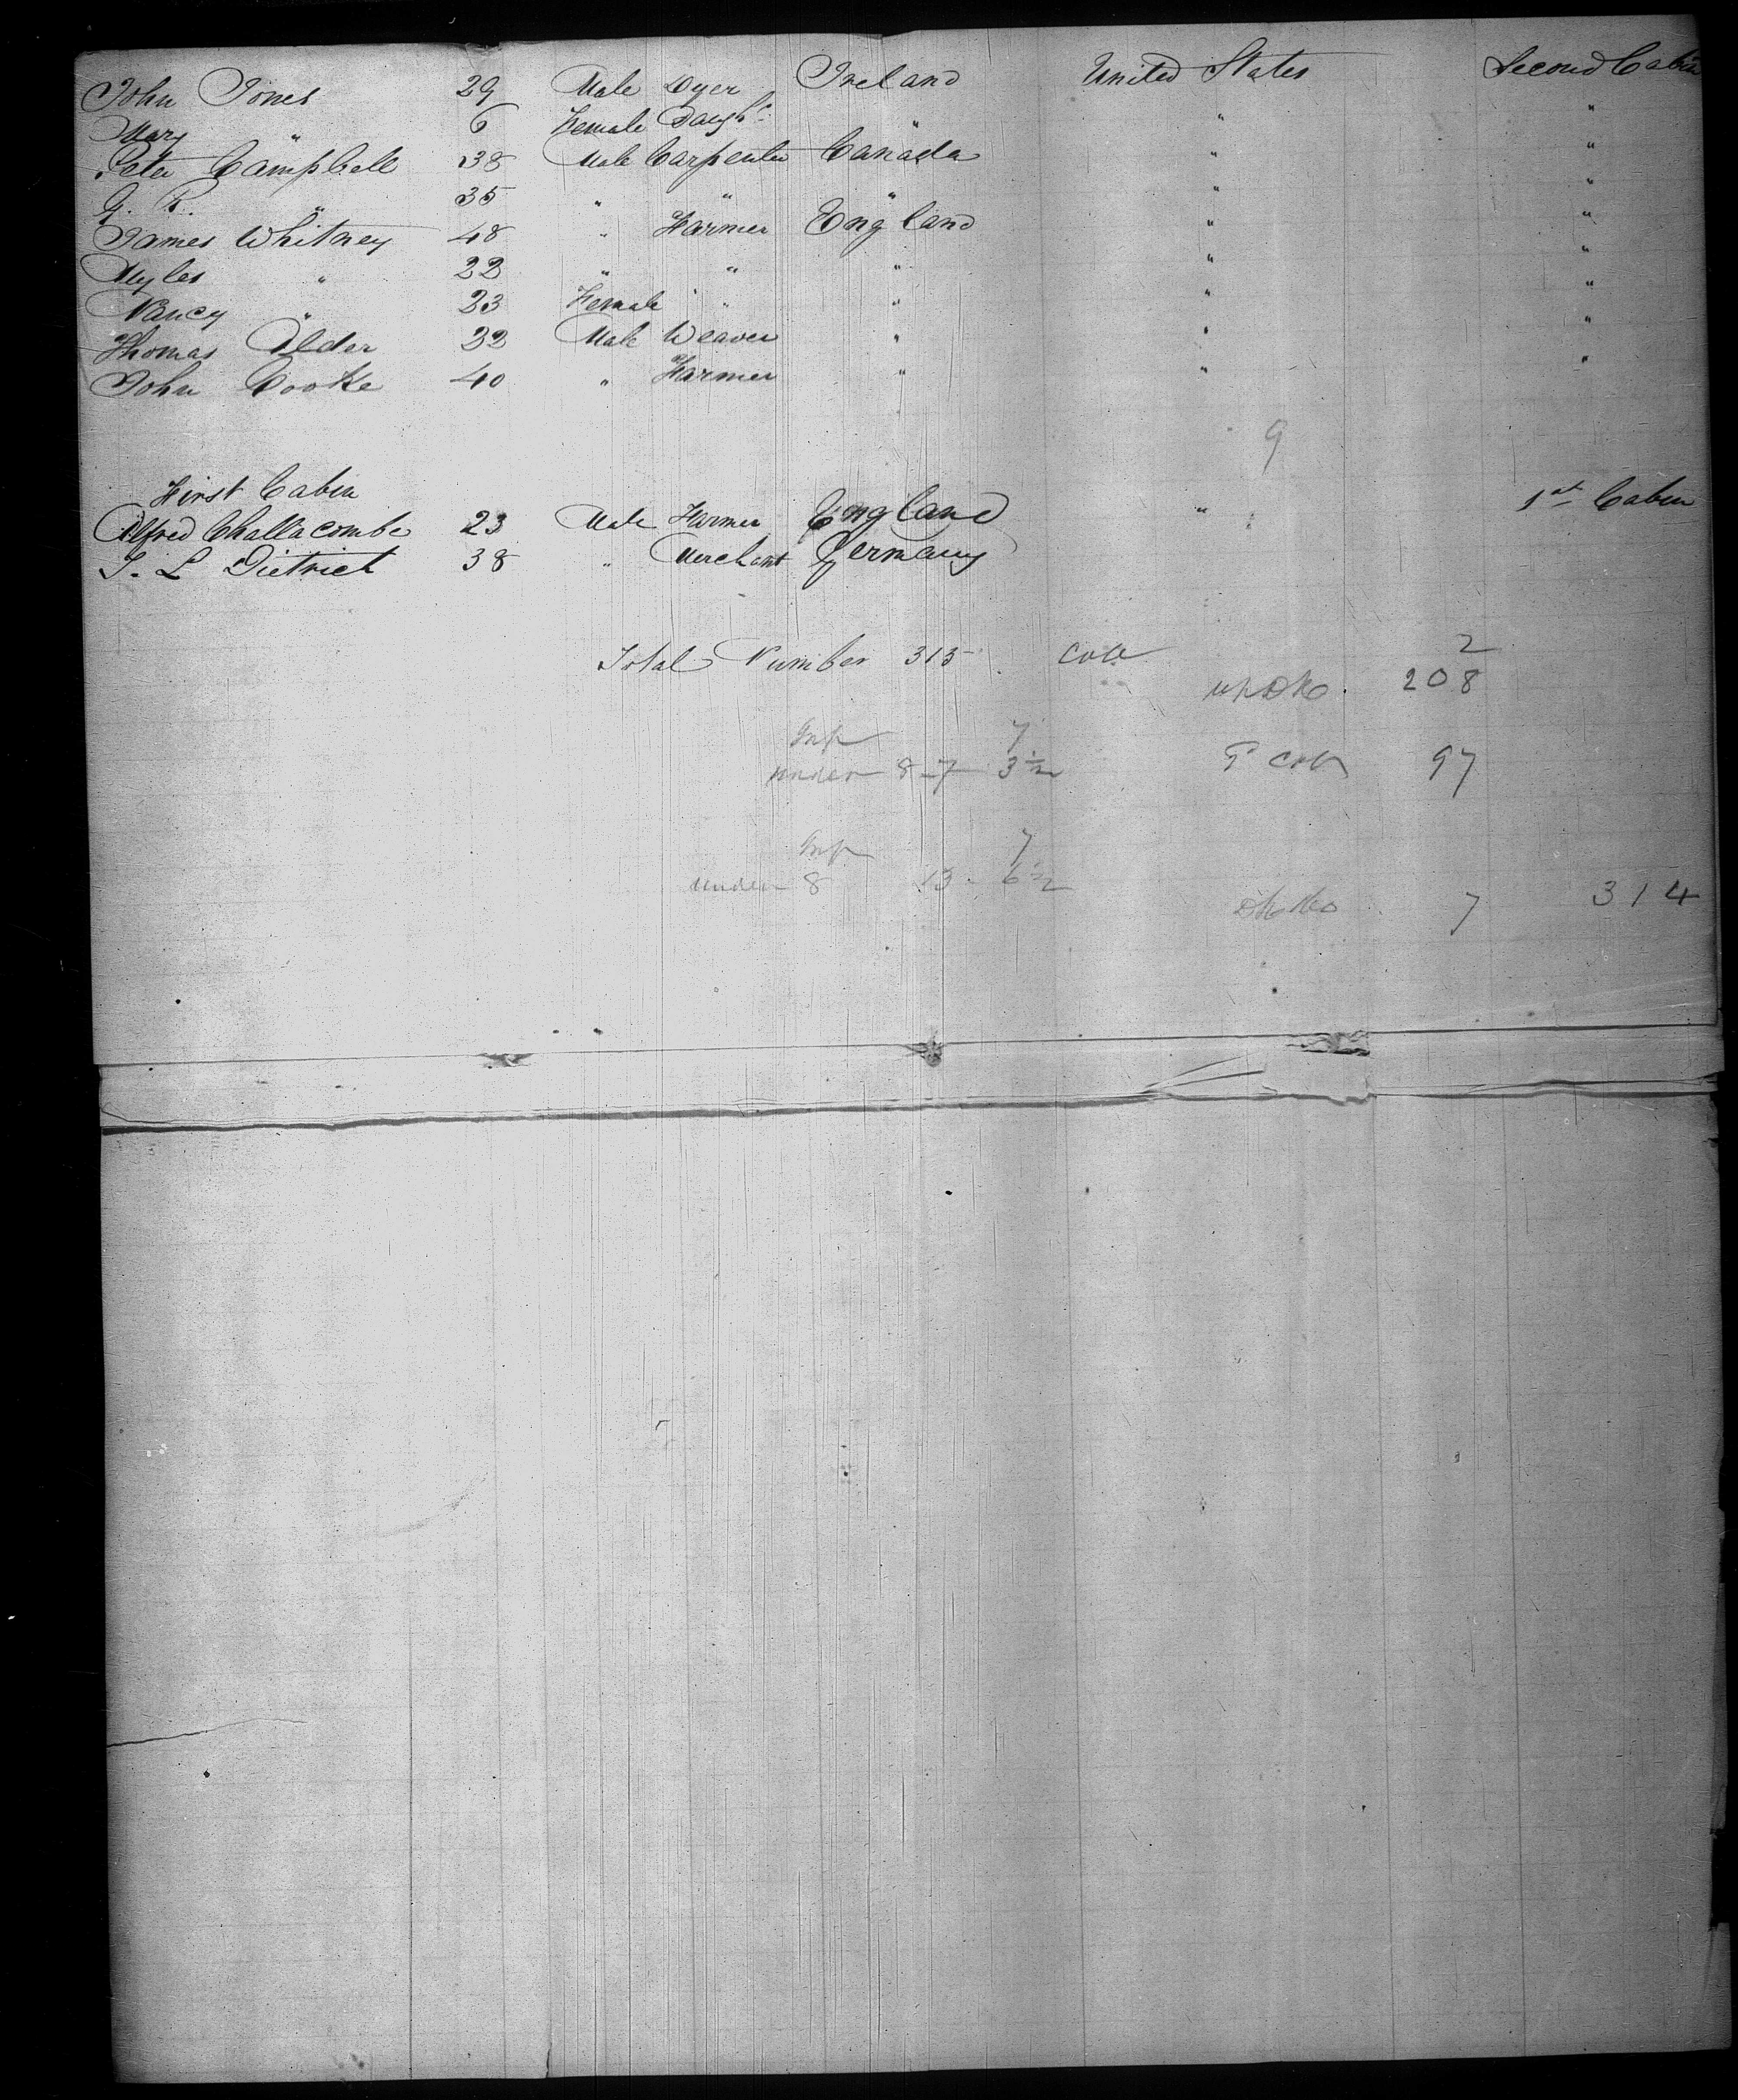 John Jones 29 Male Dyer Ireland United States Second Cabin
Mary " 6 Female Daugh^t " " "
Peter Campbell 38 Male Carpenter Canada " "
G. R. " 35 " " " " "
James Whitney 48 " Farmer England " "
Myles " 22 " " " " "
Nancy " 23 Female " " " "
Thomas Alder 32 Male Weaver " " "
John Cooke 40 " Farmer " " "
9
First Cabin
Alfred Challacombe 23 Male Farmer England " 1st Cabin
L Dietrich 38 " Merchant Germany
Total Number 315 2
208
7
under 8 - 7 3 1/2 97
7
under 8 13 - 6 1/2
7 314